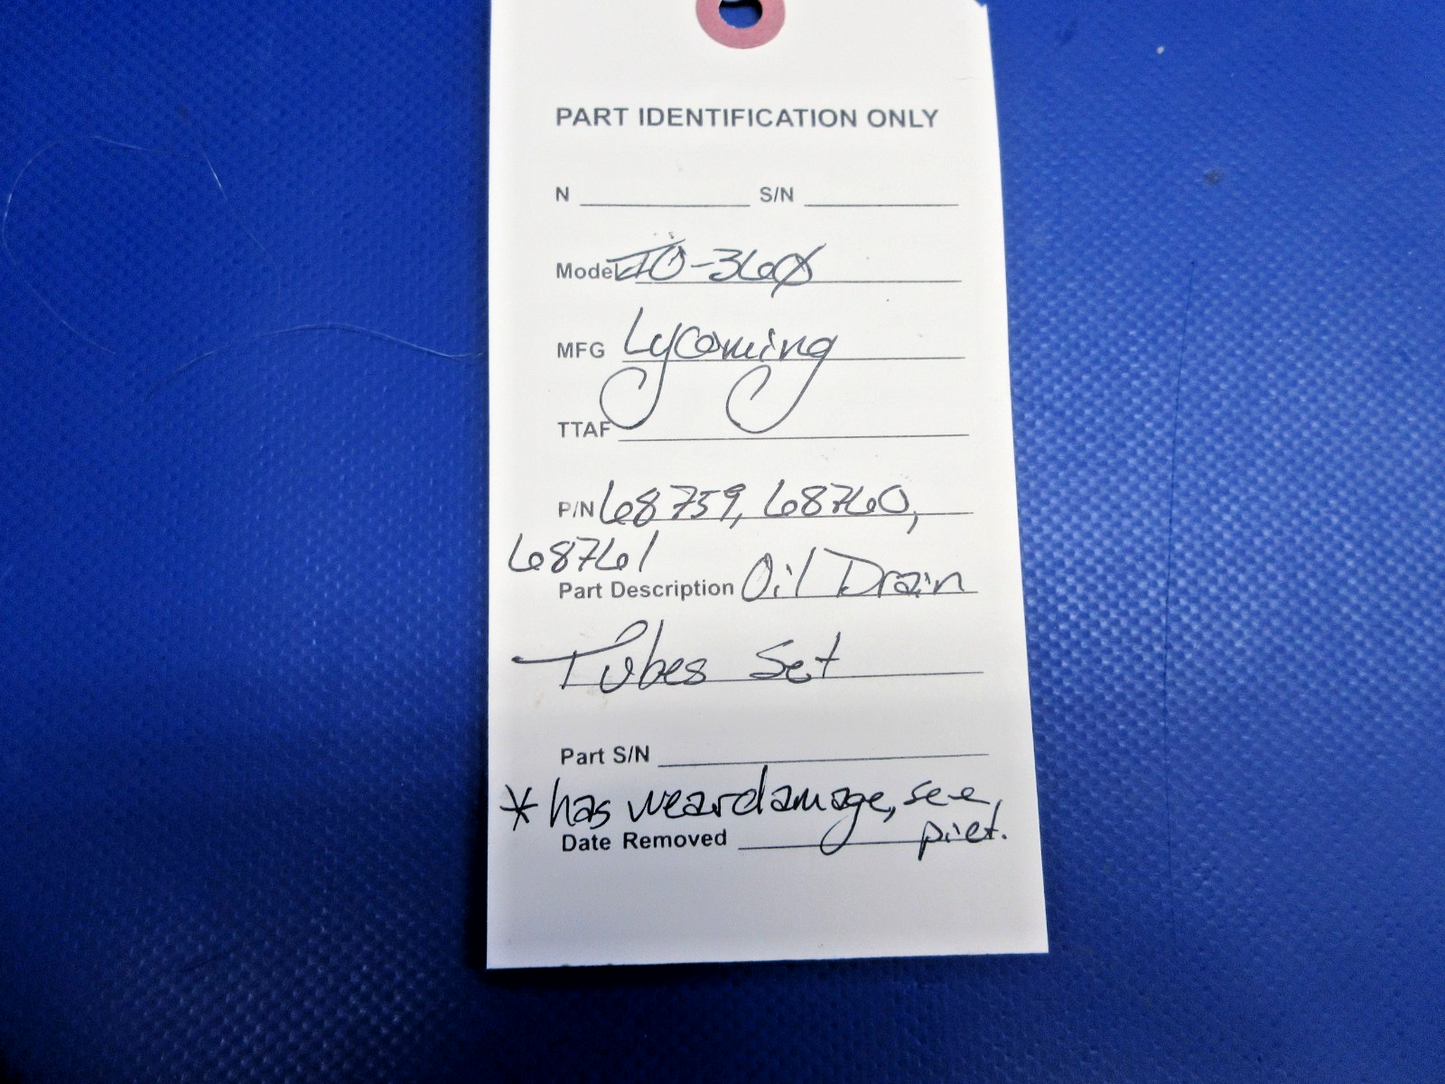 PART IDENTIFICATION ONLY
N S/N
Model IO-360
MFG Lycoming
TTAF
P/N 68759, 68760,
68761
Part Description Oil Drain
Tubes Set
Part S/N
* has wear damage, see
Date Removed pict.